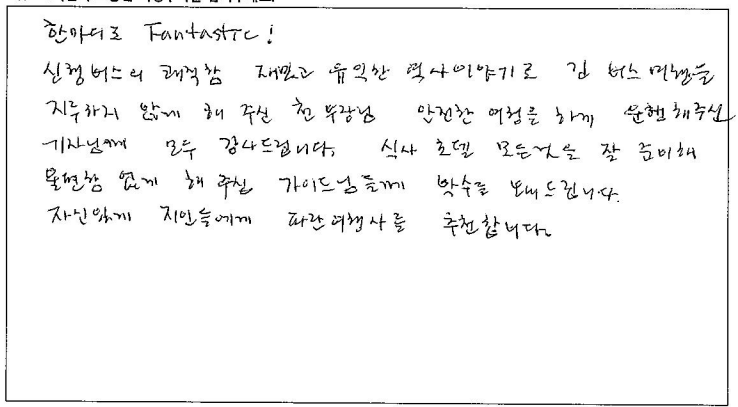 한마디로 Fantastic!
신형버스의 쾌적함 재밌고 유익한 역사이야기로 긴 버스여행을
지루하지 않게 해 주신 천부장님 안전한 여정을 하게 운행해주신
기사님께 모두 감사드립니다. 식사 호텔 모든것을 잘 준비해
불편함 없게 해 주신 가이드님들께 박수를 보내드립니다.
자신있게 지인들에게 파란여행사를 추천합니다.